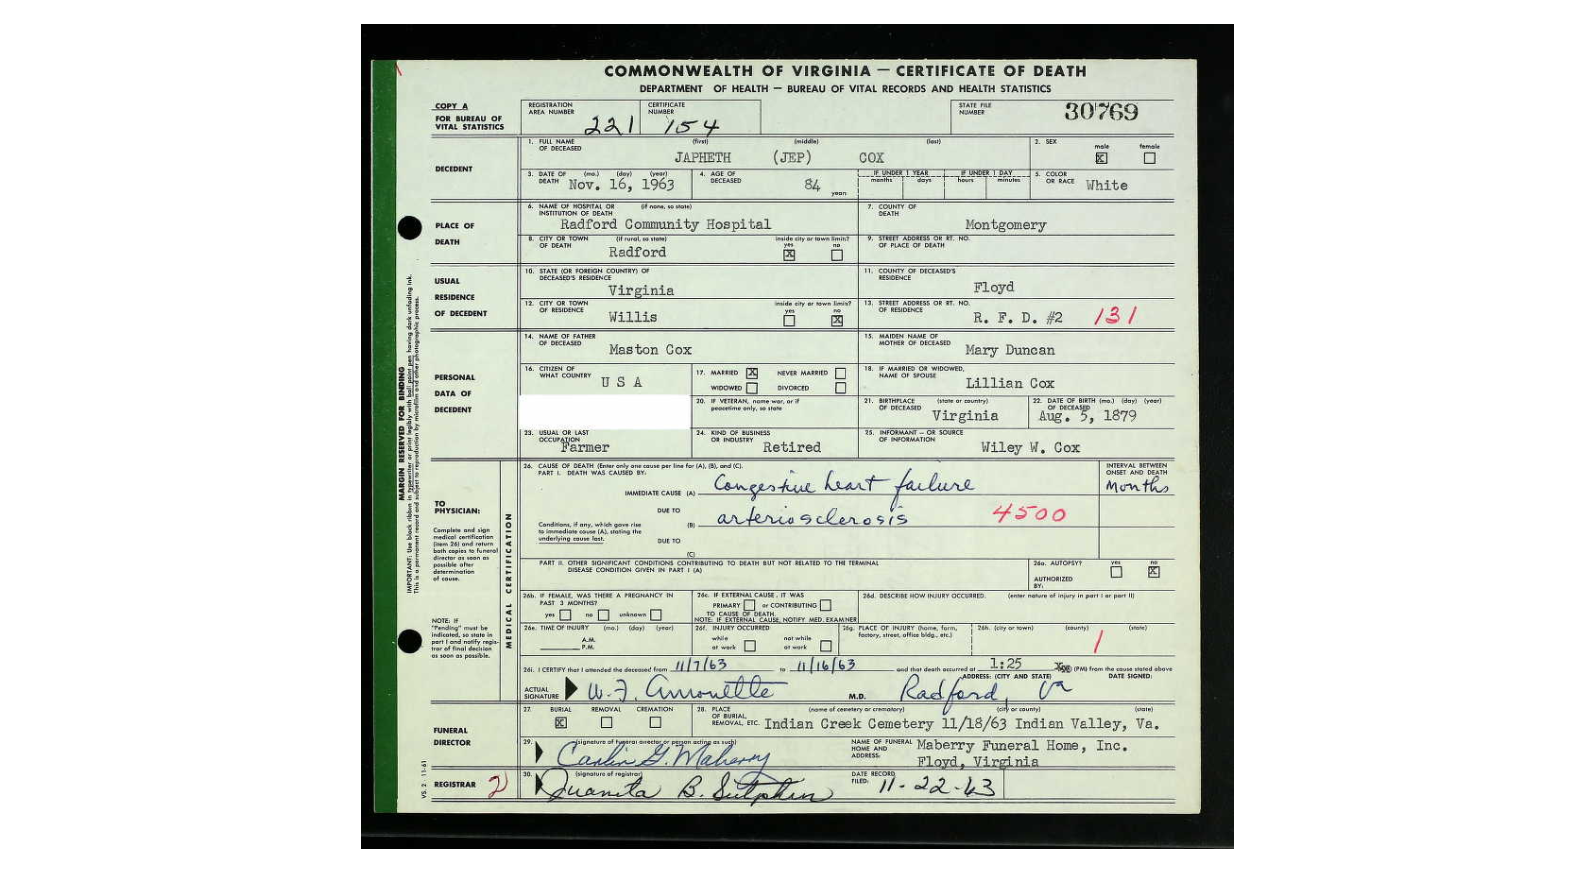 COMMONWEALTH OF VIRGINIA — CERTIFICATE OF DEATH
DEPARTMENT OF HEALTH — BUREAU OF VITAL RECORDS AND HEALTH STATISTICS
COPY A
FOR BUREAU OF
VITAL STATISTICS
REGISTRATION
AREA NUMBER
221
CERTIFICATE
NUMBER
154
STATE FILE
NUMBER
30769
DECEDENT
1. FULL NAME
OF DECEASED
(first) (middle) (last)
JAPHETH (JEP) COX
2. SEX
male female
X
3. DATE OF (mo.) (day) (year)
DEATH Nov. 16, 1963
4. AGE OF
DECEASED
84
years
IF UNDER 1 YEAR
months days
IF UNDER 1 DAY
hours minutes
5. COLOR
OR RACE White
PLACE OF
DEATH
6. NAME OF HOSPITAL OR (if none, so state)
INSTITUTION OF DEATH
Radford Community Hospital
7. COUNTY OF
DEATH
Montgomery
8. CITY OR TOWN (if rural, so state)
OF DEATH
Radford
inside city or town limits?
yes no
X
9. STREET ADDRESS OR RT. NO.
OF PLACE OF DEATH
USUAL
RESIDENCE
OF DECEDENT
10. STATE (OR FOREIGN COUNTRY) OF
DECEASED'S RESIDENCE
Virginia
11. COUNTY OF DECEASED'S
RESIDENCE
Floyd
12. CITY OR TOWN
OF RESIDENCE
Willis
inside city or town limits?
yes no
X
13. STREET ADDRESS OR RT. NO.
OF RESIDENCE
R. F. D. #2 131
PERSONAL
DATA OF
DECEDENT
14. NAME OF FATHER
OF DECEASED
Maston Cox
15. MAIDEN NAME OF
MOTHER OF DECEASED
Mary Duncan
16. CITIZEN OF
WHAT COUNTRY
U S A
17. MARRIED X NEVER MARRIED
WIDOWED DIVORCED
18. IF MARRIED OR WIDOWED,
NAME OF SPOUSE
Lillian Cox
20. IF VETERAN, name war, or if
peacetime only, so state
21. BIRTHPLACE (state or country)
OF DECEASED
Virginia
22. DATE OF BIRTH (mo.) (day) (year)
OF DECEASED
Aug. 5, 1879
23. USUAL OR LAST
OCCUPATION
Farmer
24. KIND OF BUSINESS
OR INDUSTRY
Retired
25. INFORMANT — OR SOURCE
OF INFORMATION
Wiley W. Cox
MARGIN RESERVED FOR BINDING
TO
PHYSICIAN:
Complete and sign
medical certification
(item 26) and return
both copies to funeral
director as soon as
possible after
determination
of cause.
NOTE: IF
"Pending" must be
indicated, so state in
part I and notify regis-
trar of final decision
as soon as possible.
MEDICAL CERTIFICATION
26. CAUSE OF DEATH (Enter only one cause per line for (A), (B), and (C).
PART I. DEATH WAS CAUSED BY:
INTERVAL BETWEEN
ONSET AND DEATH
IMMEDIATE CAUSE (A) Congestive heart failure
Months
DUE TO
Conditions, if any, which gave rise
to immediate cause (A), stating the
underlying cause last.
(B) arteriosclerosis 4500
DUE TO
(C)
PART II. OTHER SIGNIFICANT CONDITIONS CONTRIBUTING TO DEATH BUT NOT RELATED TO THE TERMINAL
DISEASE CONDITION GIVEN IN PART I (A)
26a. AUTOPSY? yes no
X
AUTHORIZED
BY:
26b. IF FEMALE, WAS THERE A PREGNANCY IN
PAST 3 MONTHS?
yes no unknown
26c. IF EXTERNAL CAUSE, IT WAS
PRIMARY or CONTRIBUTING
TO CAUSE OF DEATH.
NOTE: IF EXTERNAL CAUSE, NOTIFY MED. EXAMINER
26d. DESCRIBE HOW INJURY OCCURRED. (enter nature of injury in part I or part II)
26e. TIME OF INJURY (mo.) (day) (year)
A.M.
P.M.
26f. INJURY OCCURRED
while not while
at work at work
26g. PLACE OF INJURY (home, farm,
factory, street, office bldg., etc.)
26h. (city or town) (county) (state)
26i. I CERTIFY that I attended the deceased from 11/7/63 to 11/16/63 and that death occurred at 1:25 (PM) from the cause stated above
ADDRESS: (CITY AND STATE) DATE SIGNED:
ACTUAL
SIGNATURE W. F. Amonette M.D. Radford, Va
FUNERAL
DIRECTOR
27. BURIAL REMOVAL CREMATION
X
28. PLACE (name of cemetery or crematory) (city or county) (state)
OF BURIAL,
REMOVAL, ETC. Indian Creek Cemetery 11/18/63 Indian Valley, Va.
29. (signature of funeral director or person acting as such)
Carlin G. Maberry
NAME OF FUNERAL
HOME AND
ADDRESS:
Maberry Funeral Home, Inc.
Floyd, Virginia
REGISTRAR 2
30. (signature of registrar)
Juanita B. Sutphin
DATE RECORD
FILED: 11-22-63
VS. 2 - 11-61